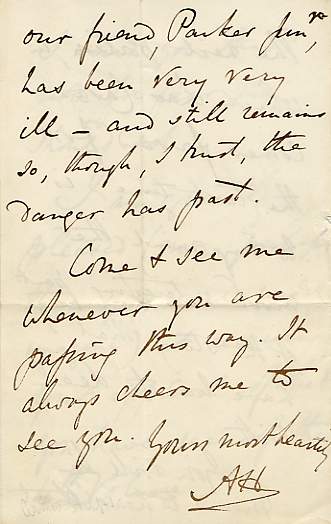 our friend, Parker Junr,
has been very very
ill – and still remains
so, though, I trust, the
danger has past.
Come & see me
whenever you are
passing this way. It
always cheers me to
see you. Yours most heartily
AH